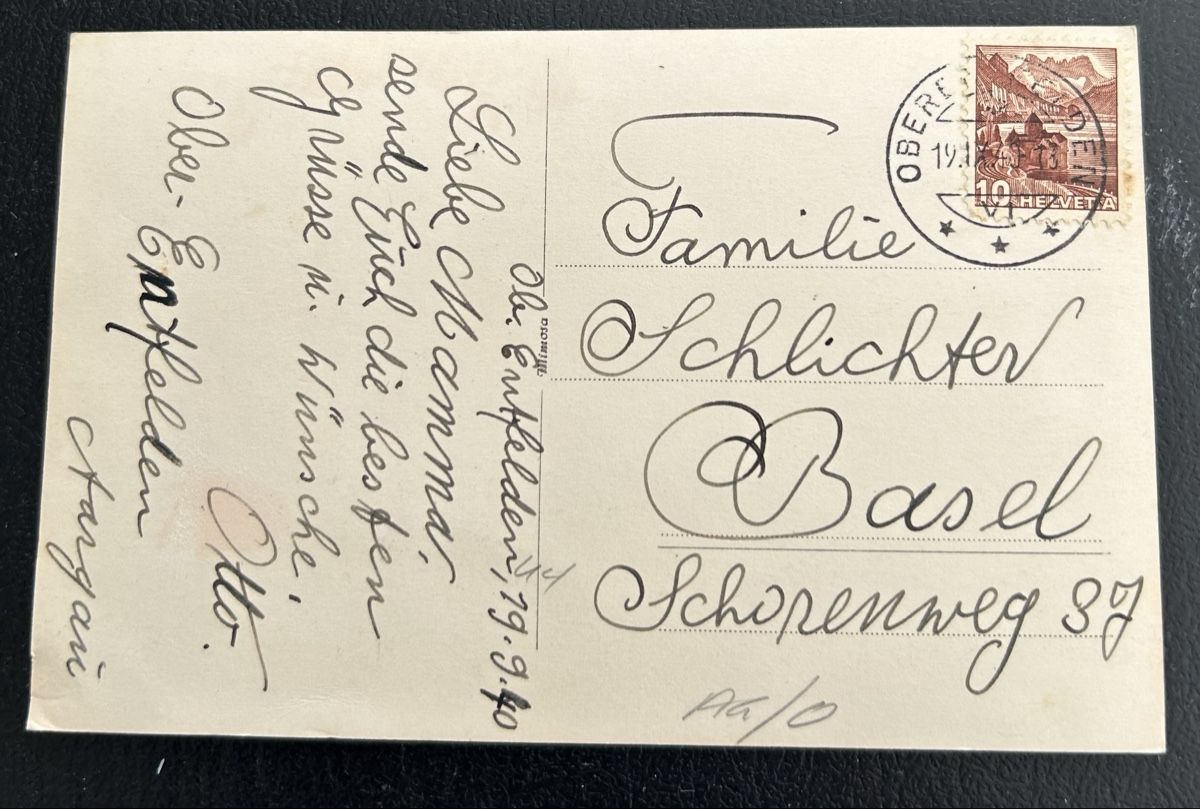 Ob. Entfelden, 19.9.40
Liebe Mamma,
sende Euch die besten
Grüsse u. Wünsche,
Otto.
Ober-Entfelden
Aargau
Familie
Schlichter
Basel
Schorenweg 37
OBERENTFELDEN
19.IX.40. 13
VI
10 HELVETIA
AG/O